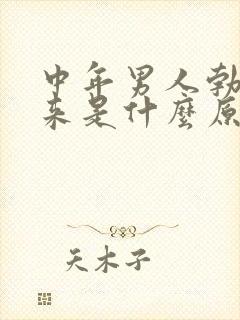 中年男人勃
来是什麼原
天木子